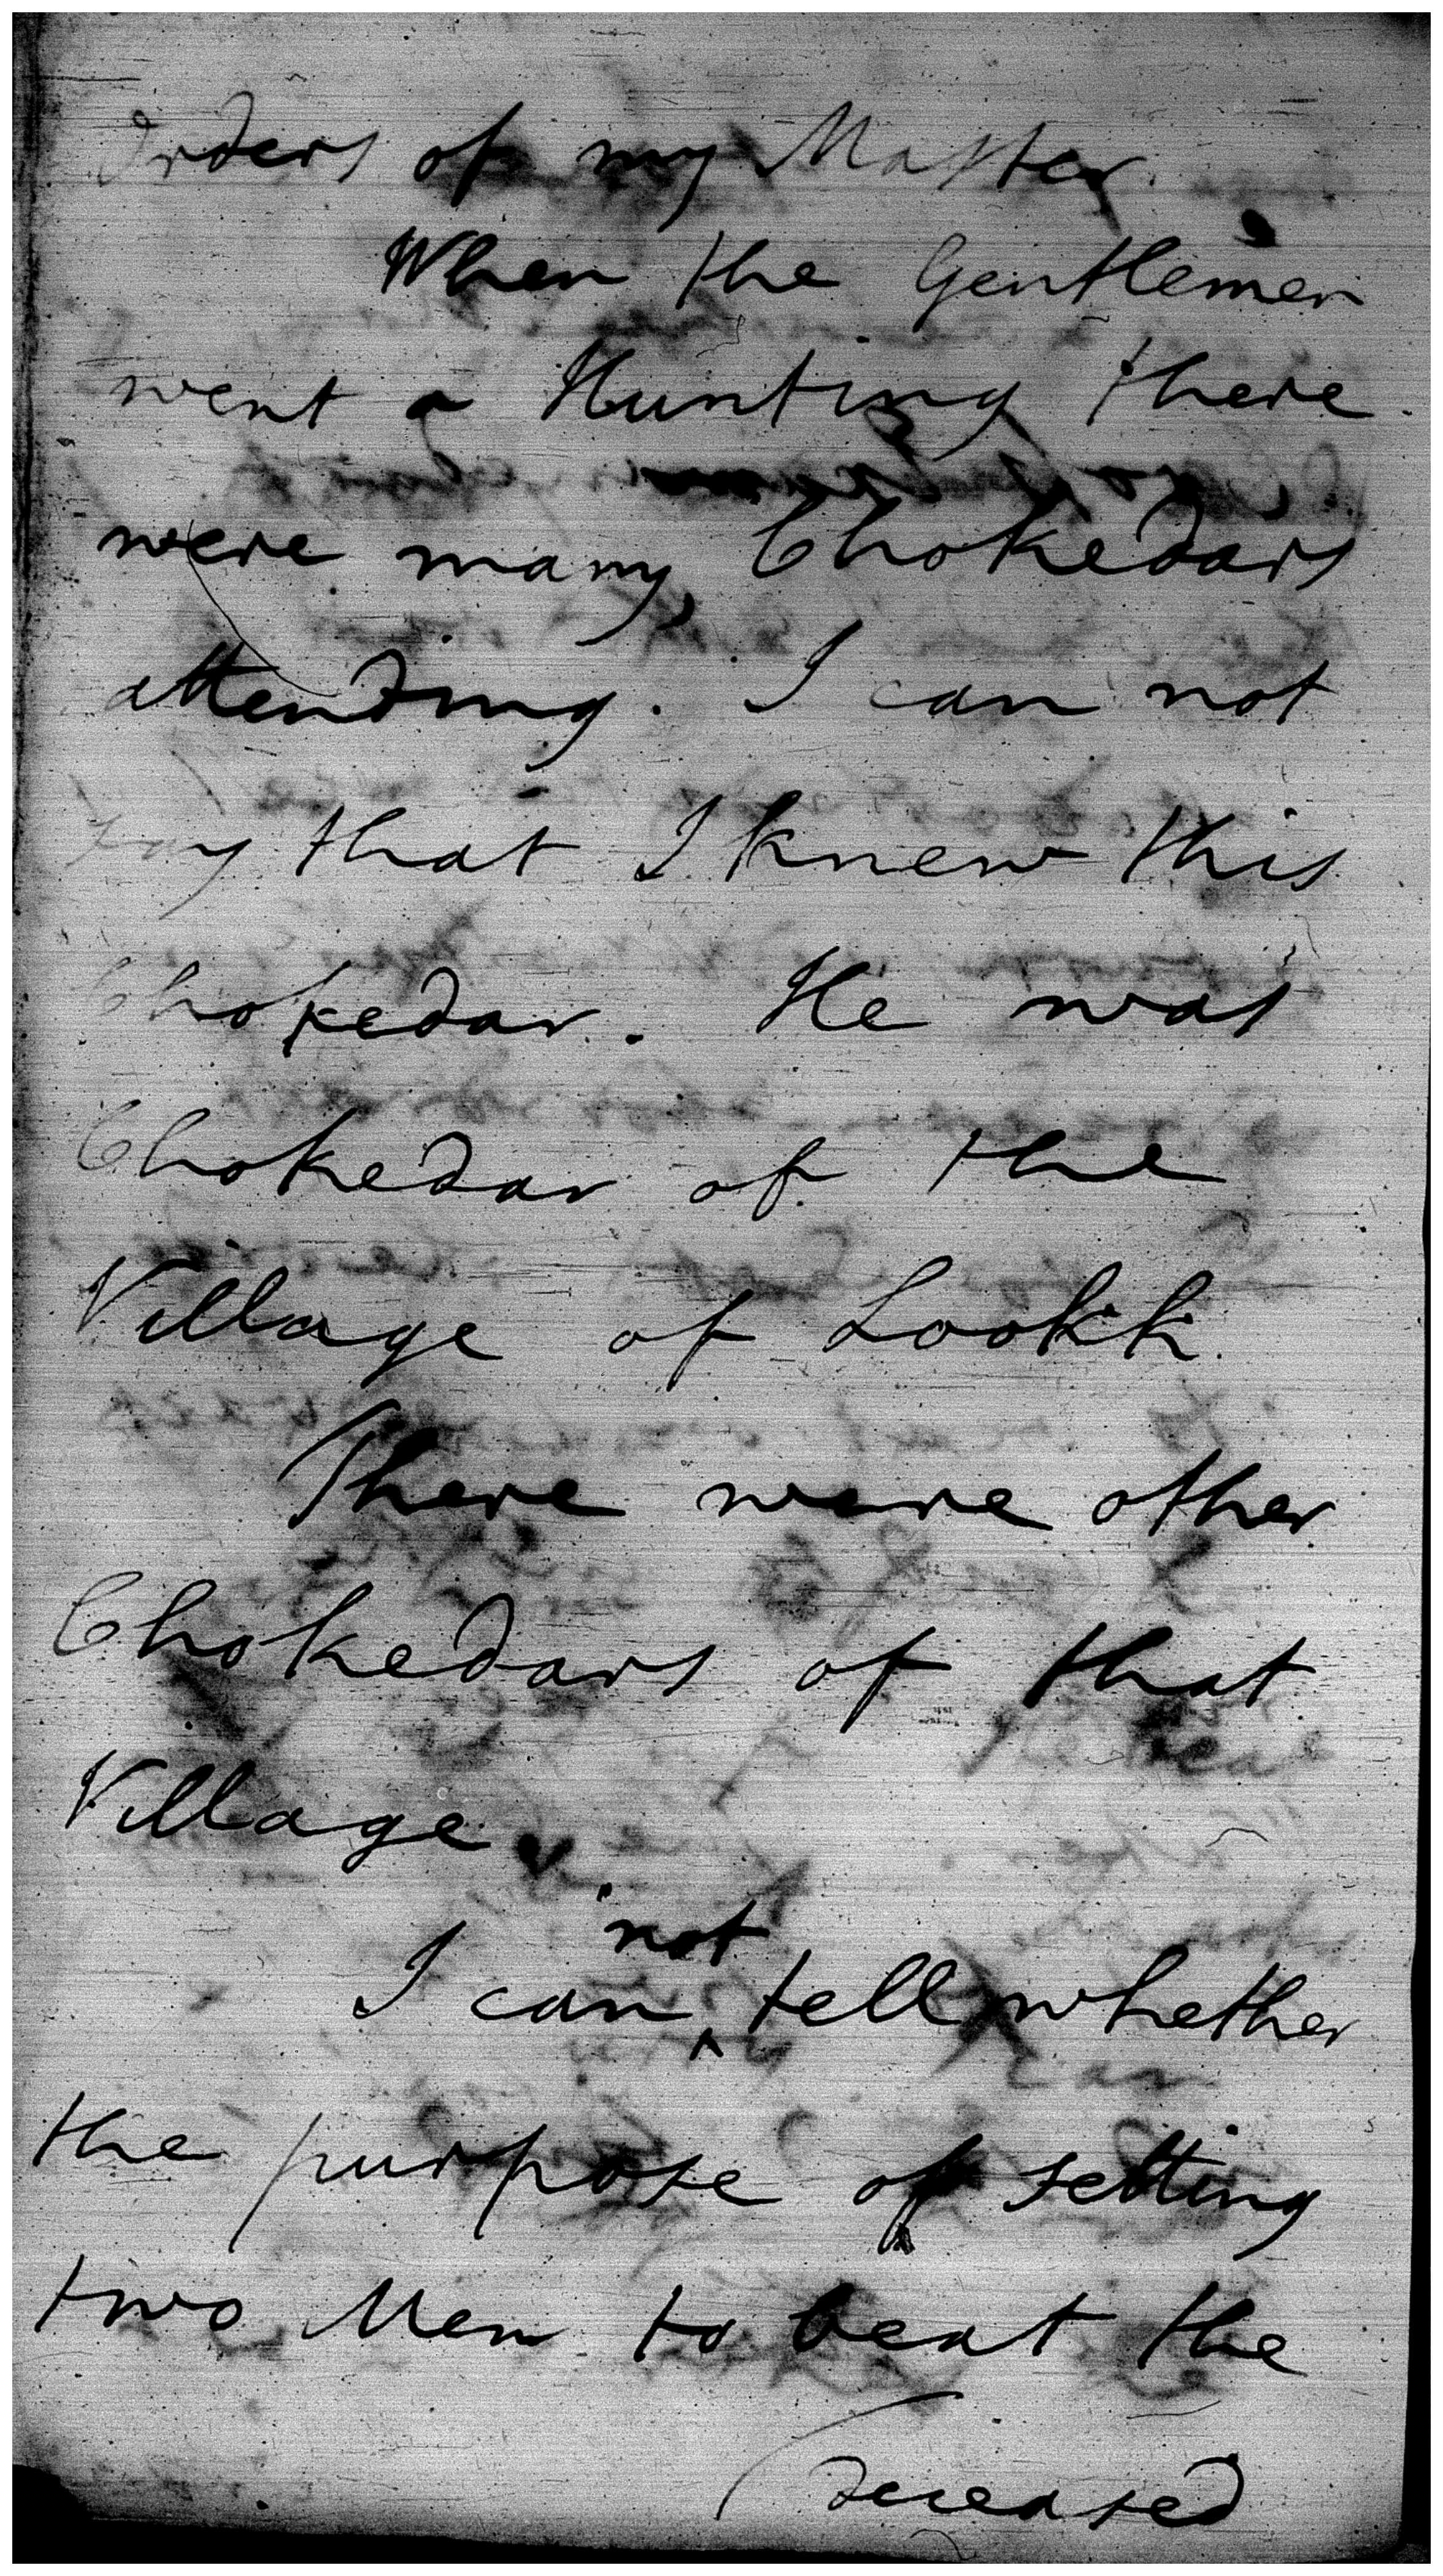 Orders of my Master.
When the Gentlemen
went a Hunting there
were many Chokedars
attending. I can not
say that I knew this
Chokedar. He was
Chokedar of the
Village of Lookh.
There were other
Chokedars of that
Village.
I can not tell whether
the purpose of setting
two Men to beat the
deceased